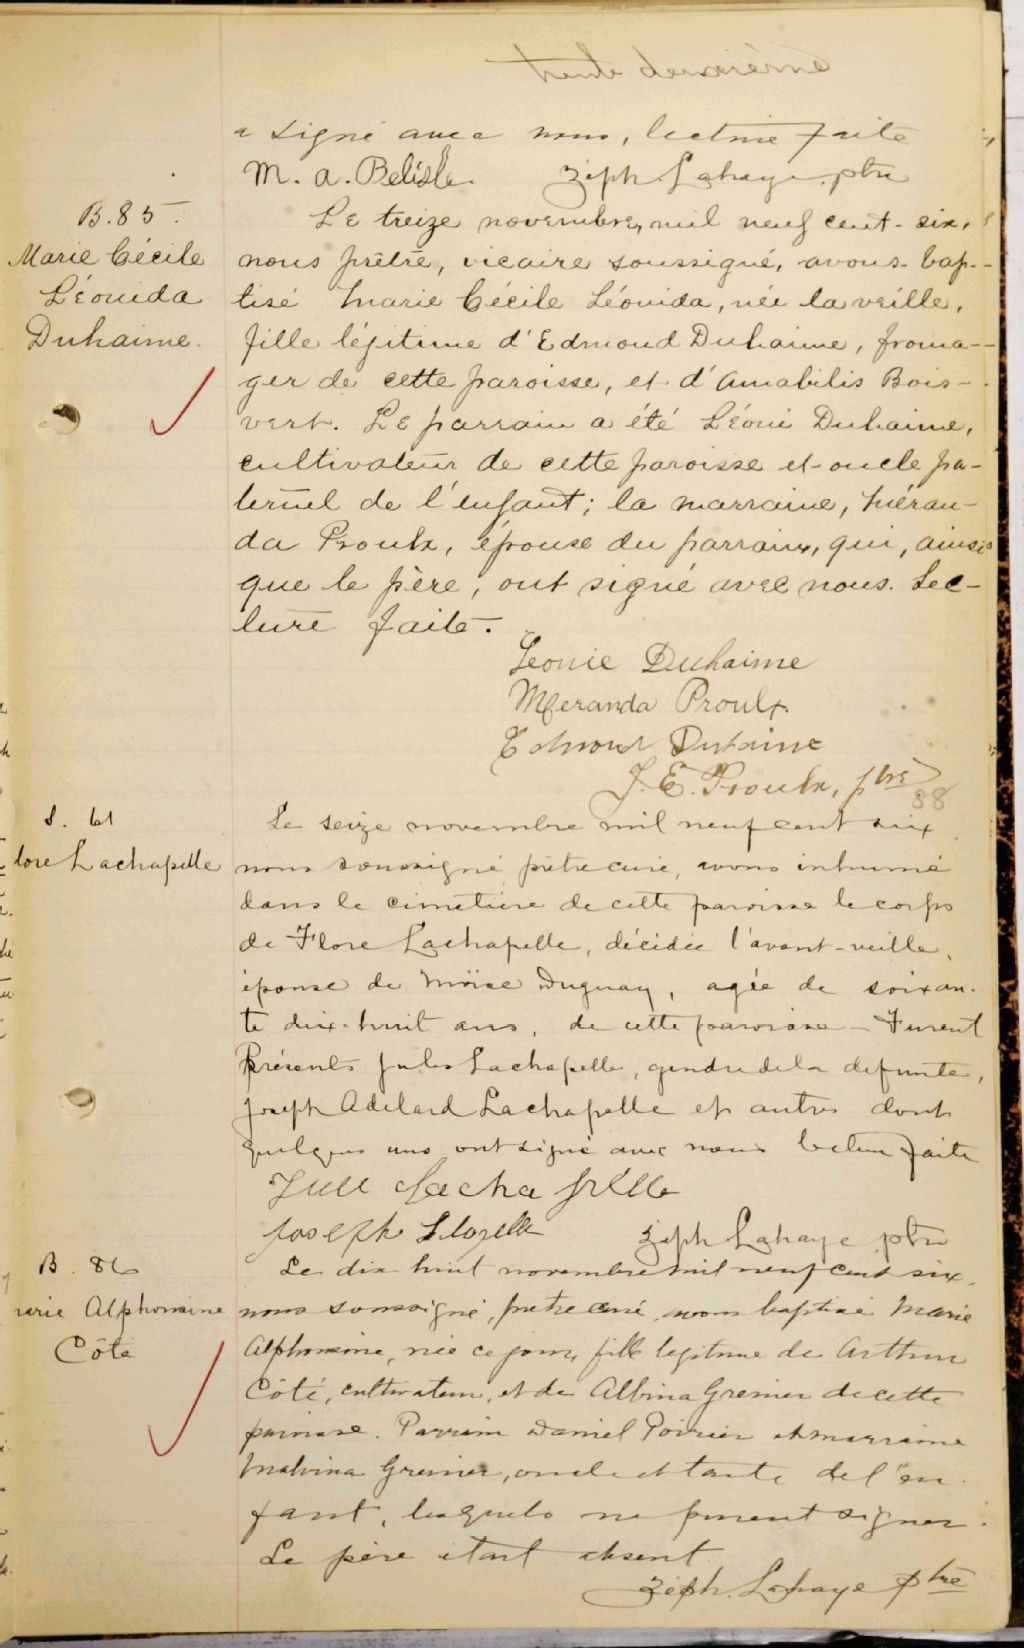 trente deuxième
a signé avec nous, lecture faite
M. A. Belisle Zéph. Lahaye ptre
B. 85.
Marie Cécile
Léonida
Duhaime.
Le treize novembre, mil neuf cent-six,
nous prêtre, vicaire soussigné, avons bap-
tisé Marie Cécile Léonida, née la veille,
fille légitime d'Edmond Duhaime, froma-
ger de cette paroisse, et d'Amabilis Bois-
vert. Le parrain a été Léoni Duhaime,
cultivateur de cette paroisse et oncle pa-
ternel de l'enfant; la marraine, Méran-
da Proulx, épouse du parrain, qui, ainsi
que le père, ont signé avec nous. Lec-
ture faite.
Leonie Duhaime
Meranda Proulx
Edmond Duhaime
J. E. Proulx, ptre
88
S. 61
lore Lachapelle
Le seize novembre mil neuf cent six
nous soussigné prêtre curé, avons inhumé
dans le cimetière de cette paroisse le corps
de Flore Lachapelle, décédée l'avant-veille,
épouse de Moïse Duguay, agée de soixan-
te dix-huit ans, de cette paroisse - Furent
Présents Jules Lachapelle, gendre de la defunte,
Joseph Adelard Lachapelle et autres dont
quelques uns ont signé avec nous lecture faite
Jule Lachapelle
Joseph
Zéph Lahaye ptre
B. 86
arie Alphonsine
Côté
Le dix huit novembre mil neuf cent six,
nous soussigné, prêtre curé, avons baptisé Marie
Alphonsine, née ce jour, fille legitime de Arthur
Côté, cultivateur, et de Albina Grenier de cette
paroisse. Parrain Daniel Poirier et marraine
Malvina Grenier, oncle et tante de l'en
fant, lesquels ne purent signer.
Le père était absent
Zéph. Lahaye ptre